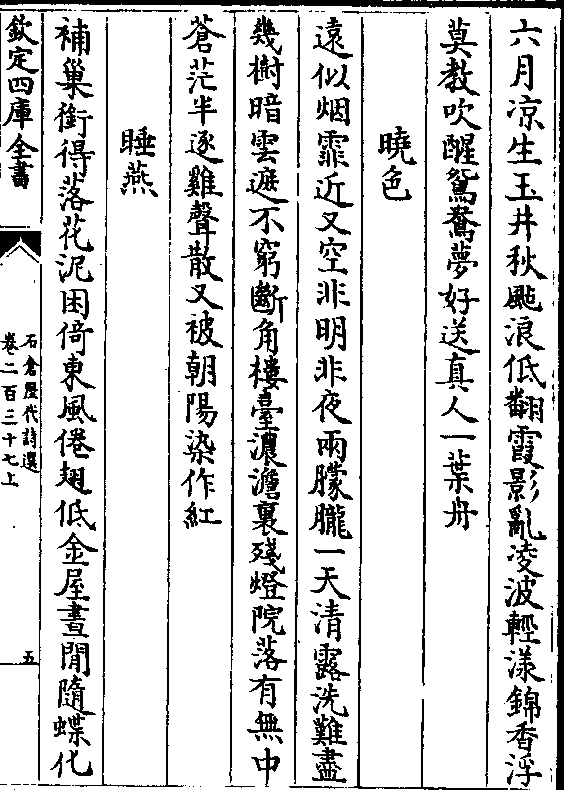 六月凉生玉井秋颭浪低翻霞影亂凌波輕漾錦香浮
莫教吹醒鴛鴦夢好送真人一葉舟
曉色
遠似烟霏近又空非明非夜兩朦朧一天清露洗難盡
幾樹暗雲遮不窮斷角樓臺濃澹裏殘燈院落有無中
蒼茫半逐雞聲散又被朝陽染作紅
睡燕
補巢銜得落花泥困倚東風倦翅低金屋晝閒隨蝶化
欽定四庫全書
石倉歷代詩選
卷二百三十七上
五